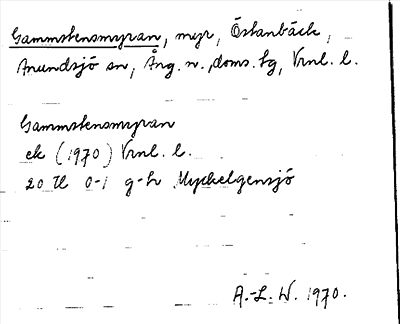 Gammstensmyran, myr, Östanbäck,
Anundsjö sn, Ång. n. doms. tg, Vrnl. l.
Gammstensmyran
ek (1970) Vrnl. l.
20 H 0-1 g-h Myckelgensjö
A.-L. W. 1970.